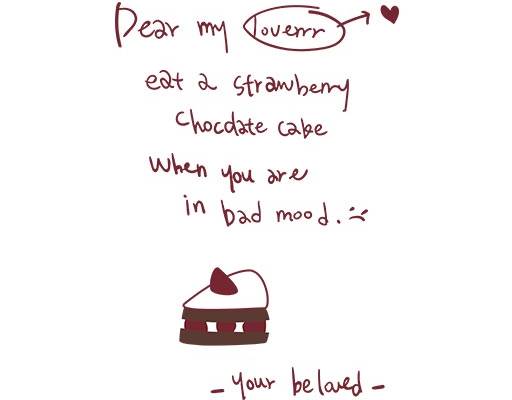 Dear my loverrr
eat a strawberry
chocolate cake
when you are
in bad mood.
- your beloved -